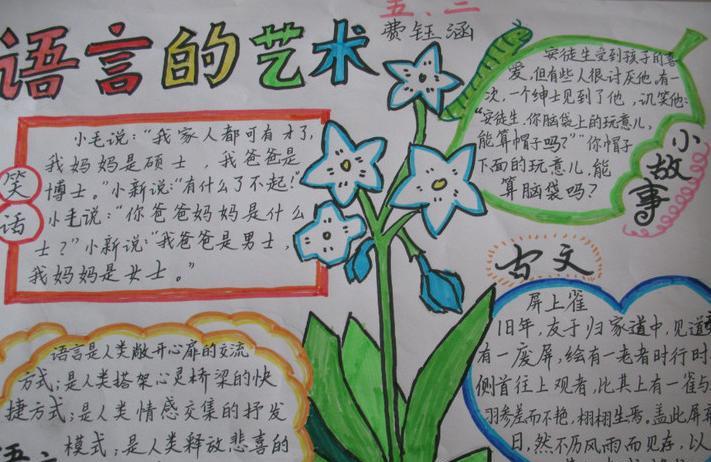 语言的艺术
五、二
费钰涵
笑话
小毛说：“我家人都可有才了，
我妈妈是硕士，我爸爸是
博士。”小新说：“有什么了不起！”
小毛说：“你爸爸妈妈是什么
士？”小新说：“我爸爸是男士，
我妈妈是女士。”
安徒生受到孩子们的喜
爱，但有些人很讨厌他，有一
次，一个绅士见到了他，讥笑他：
“安徒生，你脑袋上的玩意儿，
能算帽子吗？”“你帽子
下面的玩意儿，能
算脑袋吗？
小故事
古文
屏上雀
旧年，友于归家道中，见道
有一废屏，绘有一老者时行时
侧首往上观者，比其上有一雀与
羽参差而不艳，栩栩生焉，盖此屏弃
日，然不历风雨而见存，以
语言是人类敞开心扉的交流
方式；是人类搭架心灵桥梁的快
捷方式；是人类情感交集的抒发
模式；是人类释放悲喜的